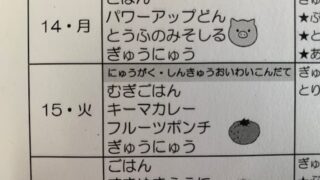 ごはん
14・月
パワーアップどん
とうふのみそしる
ぎゅうにゅう
にゅうがく・しんきゅうおいわいこんだて
15・火
むぎごはん
キーマカレー
フルーツポンチ
ぎゅうにゅう
ごはん